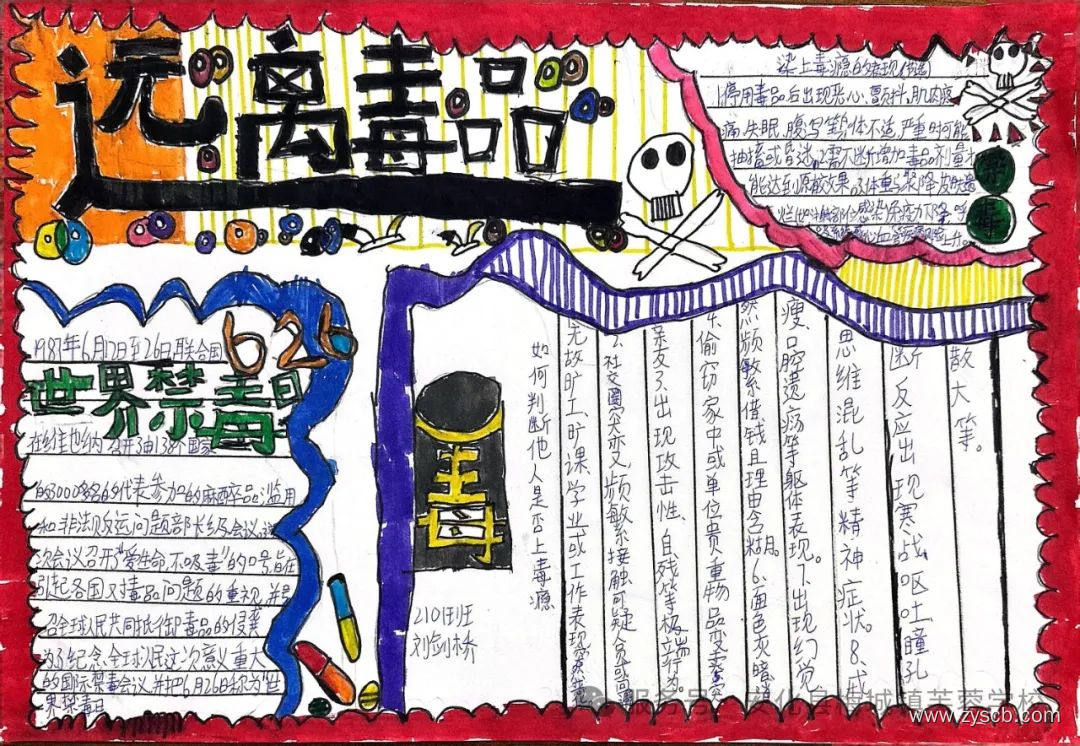 远离毒品
染上毒瘾的表现
停用毒品后出现恶心、颤抖、肌肉疼
痛、失眠、腹泻等身体不适,严重时可能
抽搐或昏迷,2需不断增加毒品剂量才
能达到原有效果,3体重骤降皮肤溃
烂
感染免疫力下降
禁
毒
626
1987年6月12日至26日,联合国
世界禁毒日
在维也纳召开了由138个国家
的3000多名的代表参加的麻醉品滥用
和非法贩运问题部长级会议,这
次会议召开"爱生命,不吸毒"的口号,旨在
引起各国对毒品问题的重视,并号
召全球人民共同抵御毒品的侵害
为了纪念全球人民这次意义重大
的国际禁毒会议,并把6月26日称为"世
界禁毒日
毒
210班
刘剑桥
如何判断他人是否上毒瘾
无故旷工、旷课、学业或工作表现突然
2.社交圈突变,频繁接触可疑
3.出现攻击性、自残等极端行为。
偷窃家中或单位贵重物品变卖
然频繁索借钱且理由含糊。6.面色灰暗消
瘦、口腔溃疡等躯体表现。7.出现幻觉
思维混乱等精神症状。8.戒
断反应出现寒战呕吐瞳孔
散大等。
服务号
海城镇芙蓉学校
www.zyscb.com